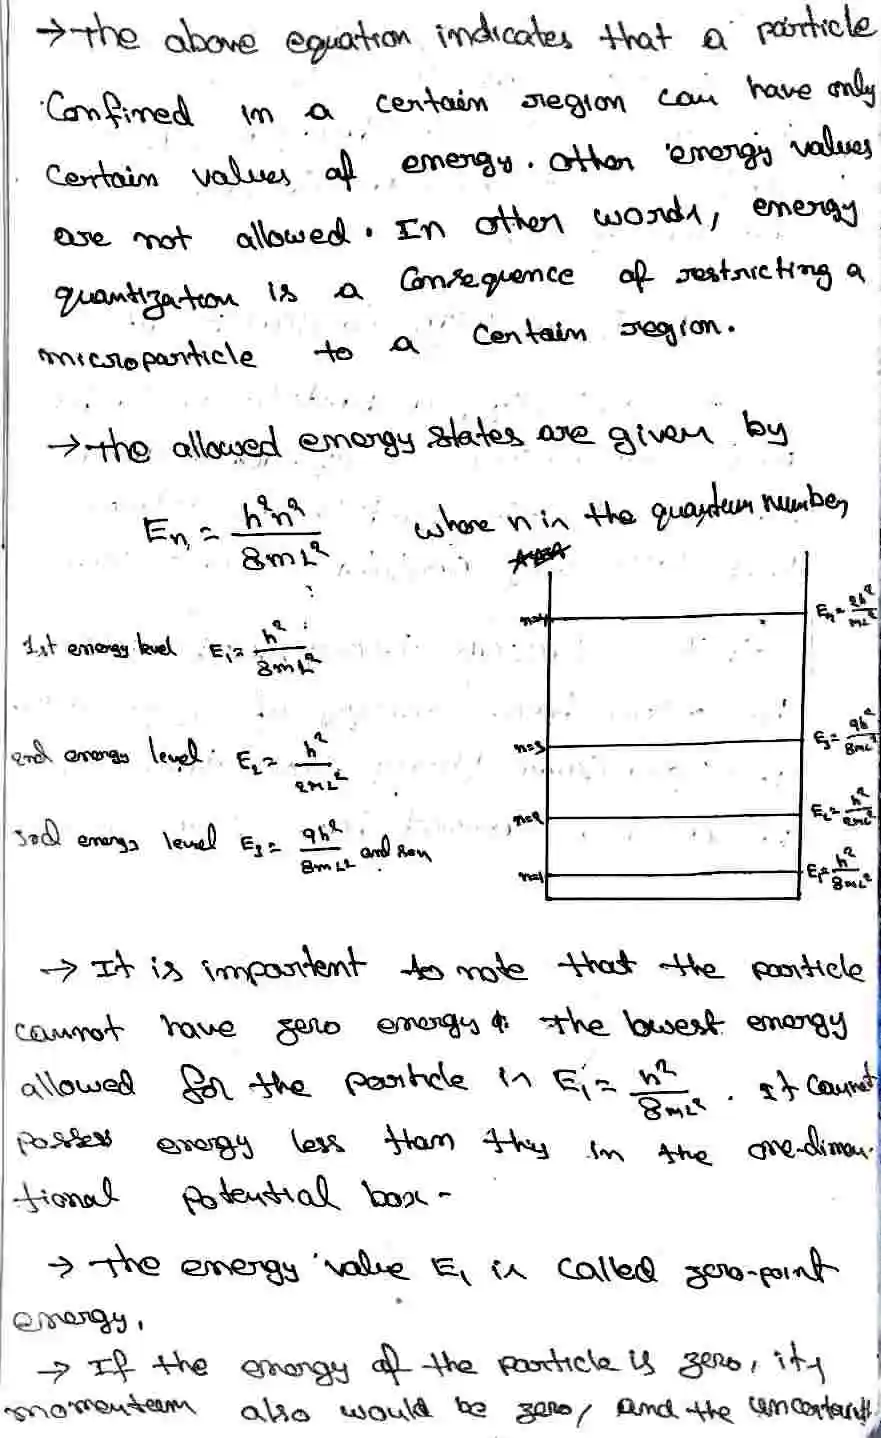 → The above equation indicates that a particle
Confined in a certain region can have only
certain values of energy. Other energy values
are not allowed. In other words, energy
quantization is a Consequence of restricting a
microparticle to a certain region.
→ The allowed energy states are given by
Eₙ = h²n² / 8mL² where n is the quantum number,
n=4 E₄ = 2h² / mL²
1st energy level E₁ = h² / 8mL²
n=3 E₃ = 9h² / 8mL²
2nd energy level: E₂ = h² / 2mL²
n=2 E₂ = h² / 2mL²
3rd energy level E₃ = 9h² / 8mL² and so on
n=1 E₁ = h² / 8mL²
→ It is importent to note that the particle
cannot have zero energy & the lowest energy
allowed for the particle is E₁ = h² / 8mL². It cannot
posses energy less than this in the one-dimen-
tional potential box-
→ The energy value E₁ is called zero-point
energy.
→ If the energy of the particle is zero, its
momentum also would be zero, and the uncertain